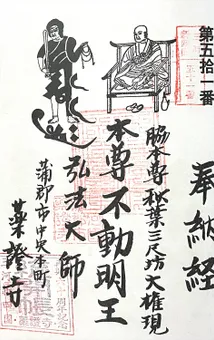 第五拾一番
奉納経
脇本尊 秋葉三尺坊大権現
本尊不動明王
弘法大師
蒲郡市中央本町
薬證寺